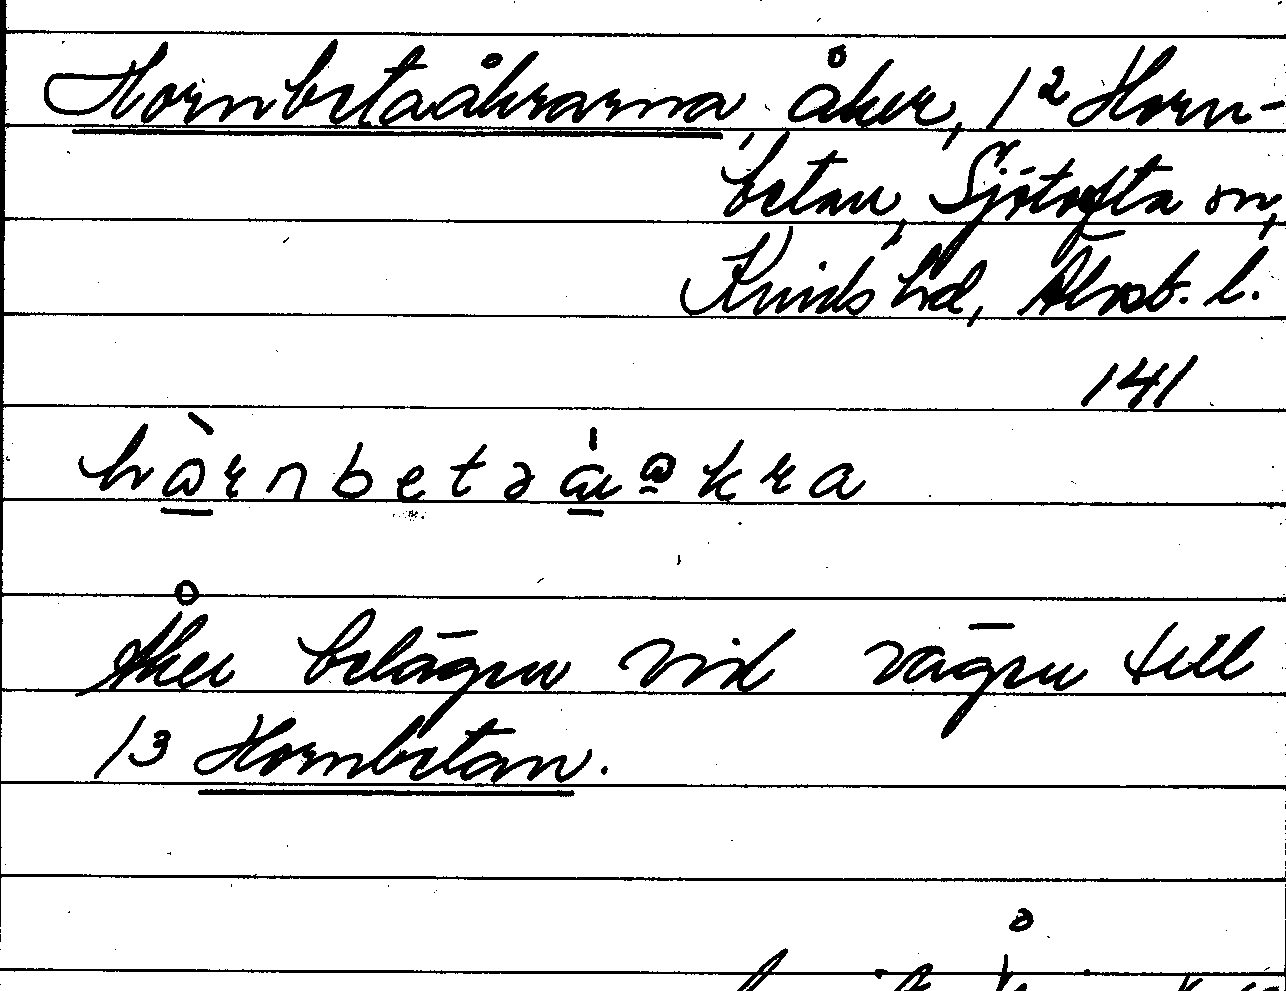 Hornbetaåkrarna, åker, 1² Horn-
betan, Sjötofta sn,
Kinds hd, Älvsb. l.
141
Åker belägen vid vägen till
1³ Hornbetan.